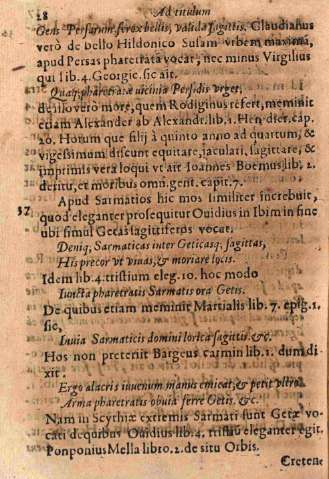 28 Ad titulum
Gens Persarum ferox bellis, valida sagittis. Claudianus
verò de bello Hildonico Susam vrbem maximã,
apud Persas pharetrata vocat, nec minus Virgilius
qui lib. 4. Georgic. sic ait.
Quaq; pharetratæ uicinia Persidis vrget,
de isto verò more, quem Rodiginus refert, meminit
etiam Alexander ab Alexand. lib. 2. Hen dier. cap.
20. Horum que filij à quinto anno ad quartum, &
vigesimum discunt equitare, iaculati, sagittare, &
imprimis vera loqui vt ait Ioannes Boemus lib. 2.
de ritu, et moribus omn. gent. capit. 7.
Apud Sarmatios hic mos similiter increbuit,
37. quod eleganter prosequitur Ouidius in Ibim in fine
ubi simul Getas sagittiferos vocat.
Deniq; Sarmaticas inter Geticasq; sagittas,
His precor vt viuas, & moriare locis.
Idem lib. 4. tristium eleg. 10. hoc modo
Iuncta pharetratis Sarmatis ora Getis.
De quibus etiam meminit Martialis lib. 7. epig. 1.
sic,
Inuia Sarmaticis domini lorica sagittis. &c.
Hos non preteriit Bargeus carmin lib. 1. dum di
xit.
Ergo alacris iuuenum manus emicat, & petit vltrò
Arma pharetratis obuia ferre Getis. &c.
Nam in Scythiæ extremis Sarmati sunt Getæ vo
cati de quibus Ouidius lib. 4. tristiũ eleganter egit.
Ponponius Mella libro. 2. de situ Orbis.
Cretense